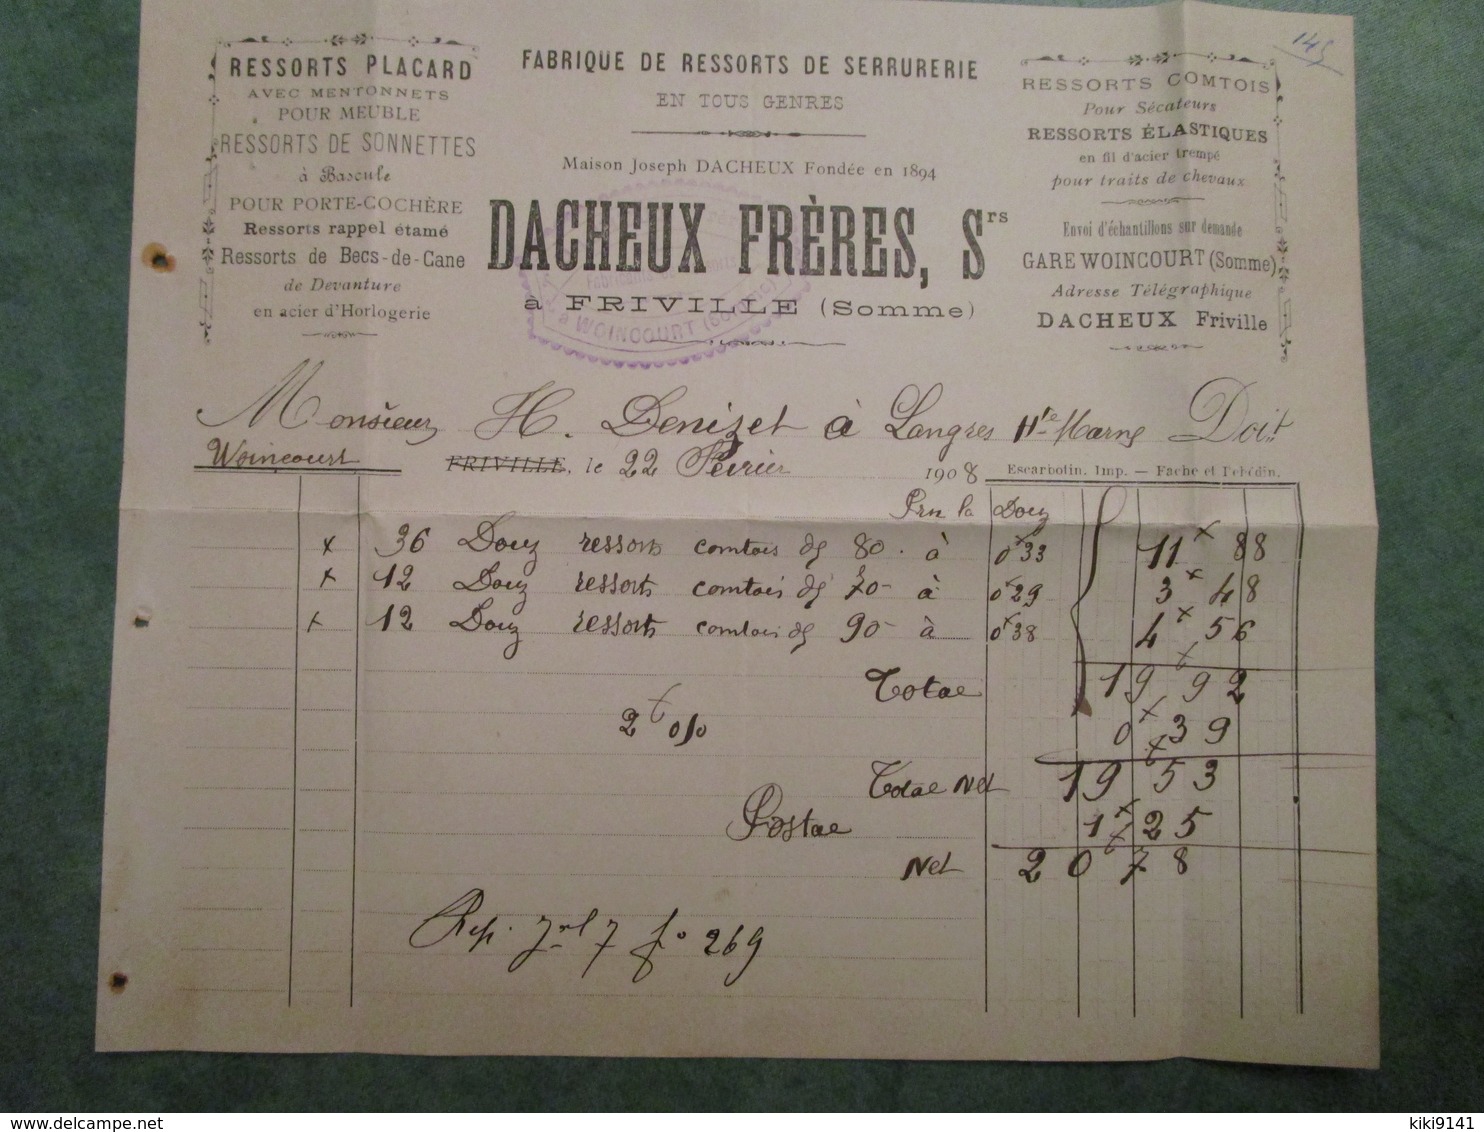 145
RESSORTS PLACARD
AVEC MENTONNETS
POUR MEUBLE
RESSORTS DE SONNETTES
à Bascule
POUR PORTE-COCHÈRE
Ressorts rappel étamé
Ressorts de Becs-de-Cane
de Devanture
en acier d'Horlogerie
FABRIQUE DE RESSORTS DE SERRURERIE
EN TOUS GENRES
Maison Joseph DACHEUX Fondée en 1894
DACHEUX FRÈRES, Srs
à FRIVILLE (Somme)
à WOINCOURT
RESSORTS COMTOIS
Pour Sécateurs
RESSORTS ÉLASTIQUES
en fil d'acier trempé
pour traits de chevaux
Envoi d'échantillons sur demande
GARE WOINCOURT (Somme)
Adresse Télégraphique
DACHEUX Friville
Monsieur H. Denizet à Langres Hte Marne Doit
Woincourt FRIVILLE, le 22 Février 1908
Escarbotin. Imp. — Fache et
la Douz
36 Douz ressorts comtois de 80 à 0 33 11 88
12 Douz ressorts comtois de 70 à 0 29 3 48
12 Douz ressorts comtois de 90 à 0 38 4 56
Total 19 92
2 % 0 39
Total Net 19 53
Postal 1 25
Net 20 78
Rep. Jnl 7 fo 269
kiki9141